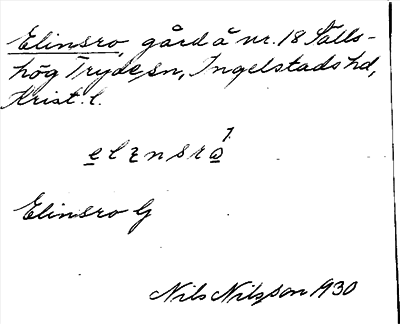 Elinsro, gård å nr. 18 Sälls-
hög Tryde sn, Ingelstads hd,
Krist. l.
elɪnsrɷ̀
Elinsro G
Nils Nilsson 1930